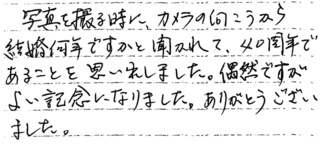 写真を撮る時に、カメラの向こうから
結婚何年ですかと聞かれて、40周年で
あることを思い出しました。偶然ですが
よい記念になりました。ありがとうござい
ました。